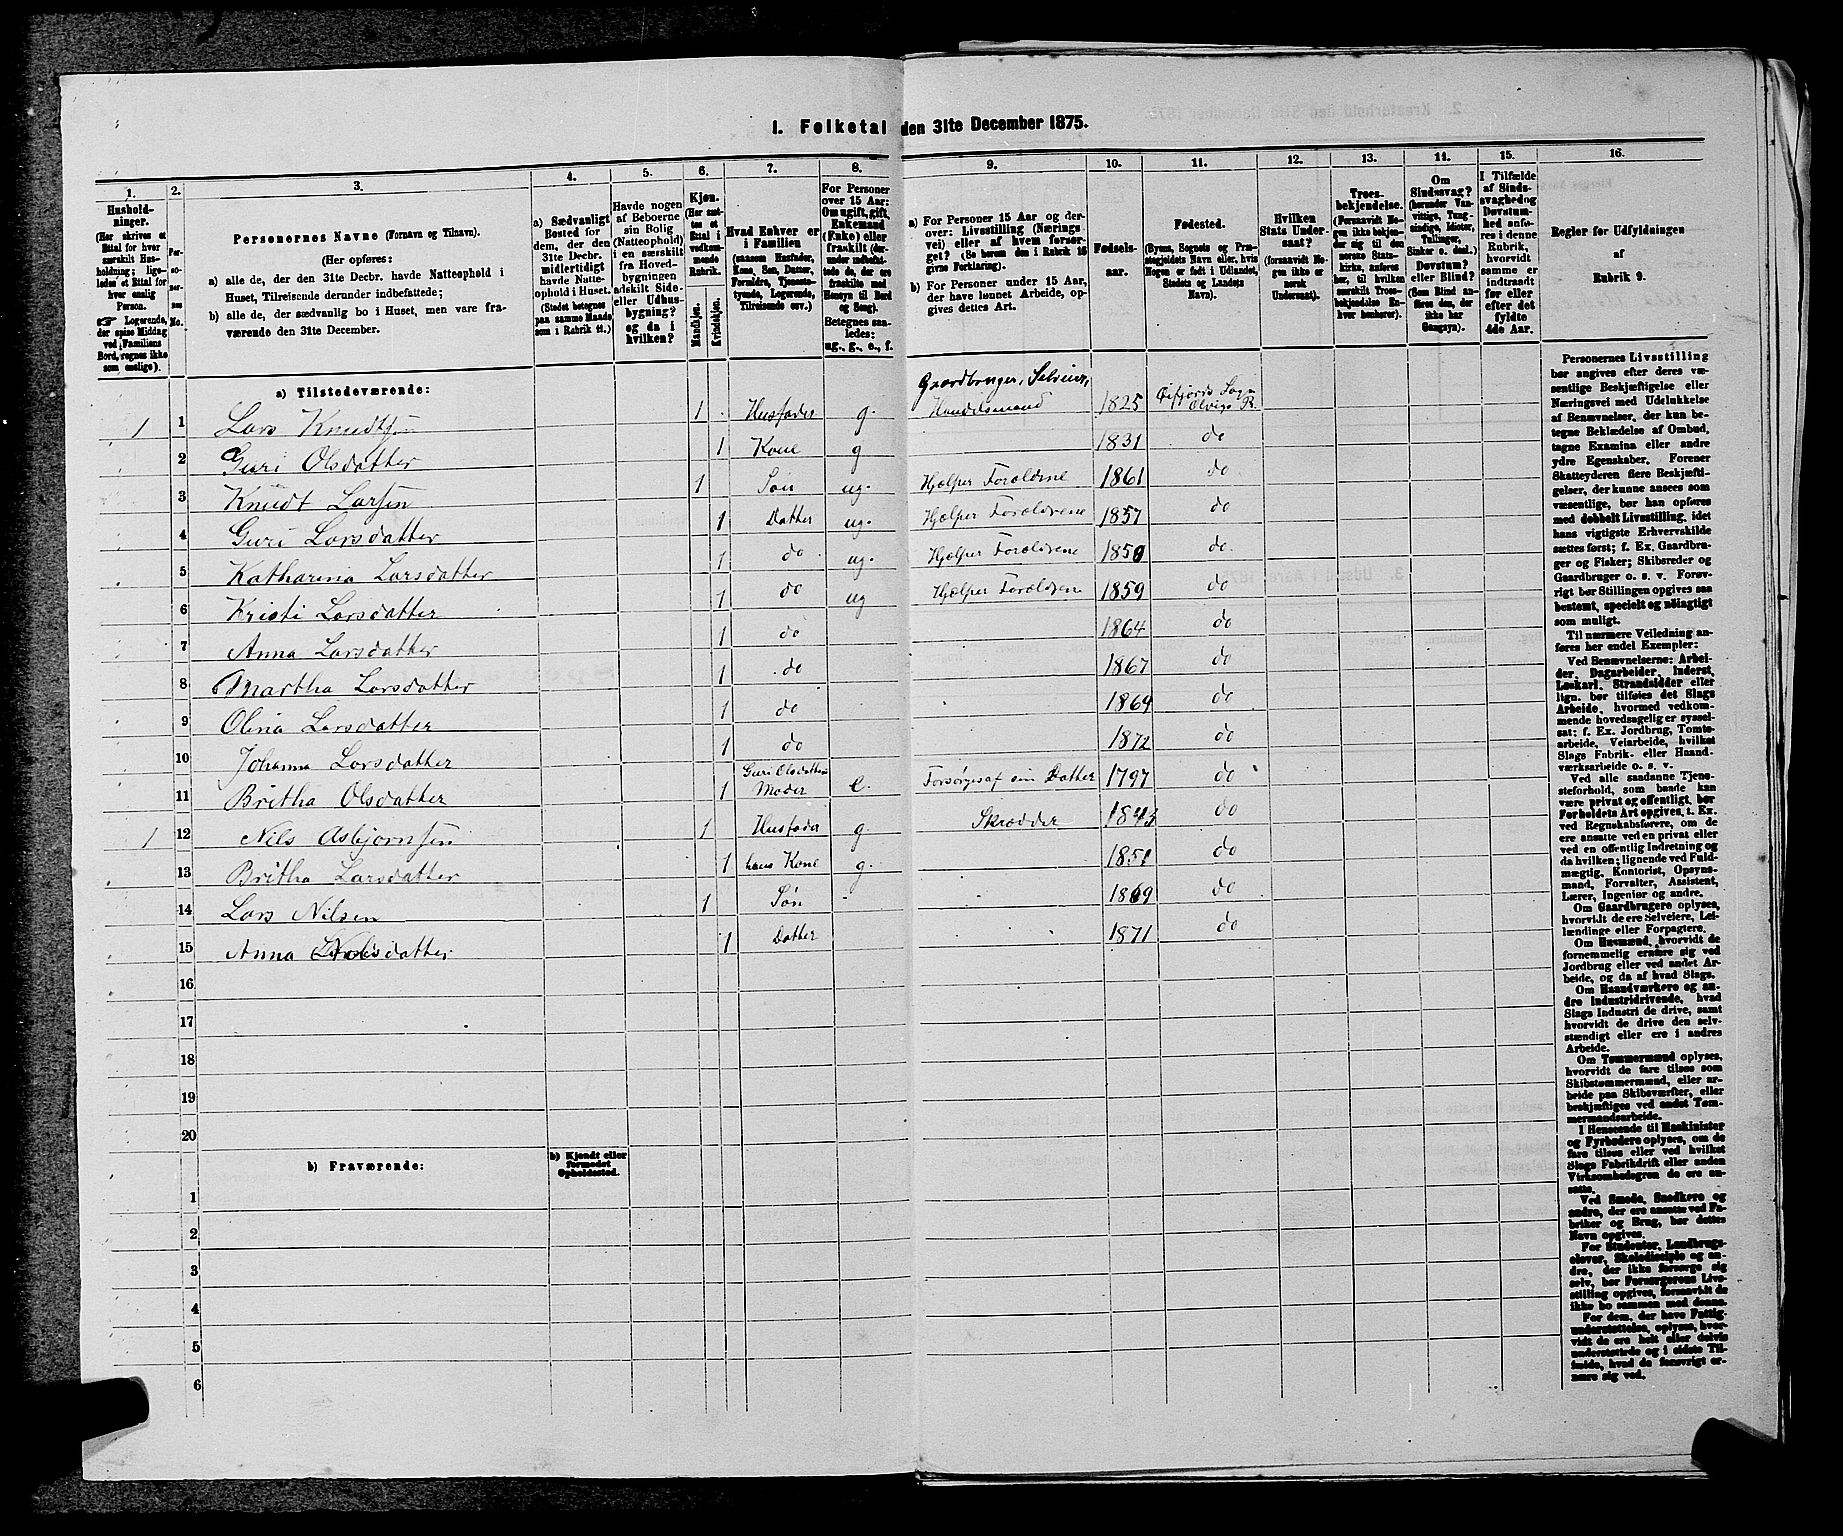 I. Folketal den 31te December 1875.
1. 2. 3. 4. 5. 6. 7. 8. 9. 10. 11. 12. 13. 14. 15. 16.
Husholdninger.
(Her skrives et Ettal for hver særskilt Husholdning; ligeledes et Ettal for hver enslig Person.
☞ Logerende, der spise Middag ved Familiens Bord, regnes ikke som enslige).
Personernes No.
Personernes Navne (Fornavn og Tilnavn).
(Her opføres:
a) alle de, der den 31te Decbr. havde Natteophold i Huset, Tilreisende derunder indbefattede;
b) alle de, der sædvanlig bo i Huset, men vare fraværende den 31te December.
a) Sædvanligt Bosted for dem, der den 31te Decbr. midlertidigt havde Natteophold i Huset. (Stedet betegnes paa samme Maade som i Rubrik 11.)
Havde nogen af Beboerne sin Bolig (Natteophold) i en særskilt fra Hovedbygningen adskilt Side- eller Udhusbygning? og da i hvilken?
Kjøn. (Her sættes et Ettal i vedkommende Rubrik.
Mandkjøn. Kvindekjøn.
Hvad Enhver er i Familien
(saasom Husfader, Kone, Søn, Datter, Forældre, Tjenestetyende, Logerende, Tilreisende osv.)
For Personer over 15 Aar: Om ugift, gift, Enkemand (Enke) eller fraskilt (derunder indbefattede de, der ere fraskilte med Hensyn til Bord og Seng). Betegnes saaledes: ug., g., e., f.
a) For Personer 15 Aar og derover: Livsstilling (Næringsvei) eller af hvem forsørget? (Se herom den i Rubrik 16 givne Forklaring).
b) For Personer under 15 Aar, der have lønnet Arbeide, opgives dettes Art.
Fødselsaar.
Fødested.
(Byens, Sognets og Præstegjeldets Navn eller, hvis Nogen er født i Udlandet, Stedets og Landets Navn).
Hvilken Stats Undersaat?
(forsaavidt Nogen ikke er norsk Undersaat).
Troesbekjendelse.
(Forsaavidt Nogen ikke bekjender sig til den norske Statskirke, anføres her, til hvilken særskilt Troesbekjendelse Enhver henhører).
Om Sindssvag? (herunder Vanvittige, Tungsindige, Idioter, Tullinger, Sinker o. desl.) Døvstum? eller Blind? (Som Blind anføres den, der ikke har Gangsyn).
I Tilfælde af Sindssvaghed og Døvstumhed anføres i denne Rubrik, hvorvidt samme er indtraadt før eller efter det fyldte 4de Aar.
Regler for Udfyldningen
af
Rubrik 9.
a) Tilstedeværende:
Gaardbruger, Selveier,
1 1 Lars Knudtsen 1 Husfader g. Handelsmand 1825 Eifjords Sogn Ulvigs P.
2 Guri Olsdatter 1 Kone g 1831 do
3 Knudt Larsen 1 Søn ug. Hjælper Forældrene 1861 do
4 Guri Larsdatter 1 Datter ug. Hjælper Forældrene 1857 do
5 Katharina Larsdatter 1 do ug. Hjælper Forældrene 1850 do.
6 Kristi Larsdatter 1 do ug Hjælper Forældrene 1859 do
7 Anna Larsdatter 1 do 1864 do
8 Martha Larsdatter 1 do 1867 do
9 Olina Larsdatter 1 do 1869 do
10 Johanna Larsdatter 1 do 1872 do
11 Britha Olsdatter 1 Guri Olsdatters Moder e. Forsørges af sin Datter 1797 do
1 12 Nils Asbjørnsen 1 Husfader g Skrædder 1843 do
13 Britha Larsdatter 1 hans Kone g. 1851 do
14 Lars Nilsen 1 Søn 1869 do
15 Anna Nilsdatter 1 Datter 1871 do
16
17
18
19
20
b) Fraværende:
b) Kjendt eller formodet Opholdssted.
1
2
3
4
5
6
Personernes Livsstilling
bør angives efter deres væ-
sentlige Beskjæftigelse eller
Næringsvei med Udelukkelse
af Benævnelser, der kun be-
tegne Beklædelse af Ombud,
tagne Examina eller andre
ydre Egenskaber. Forener
Skatteyderen flere Beskjæfti-
gelser, der kunne ansees som
væsentlige, bør han opføres
med dobbelt Livsstilling, idet
hans vigtigste Erhvervskilde
sættes først; f. Ex. Gaardbru-
ger og Fisker; Skibsreder og
Gaardbruger o. s. v. Forøv-
rigt bør Stillingen opgives saa
bestemt, specielt og nøiagtigt
som muligt.
Til nærmere Veiledning an-
føres her endel Exempler:
Ved Benævnelserne: Arbei-
der, Dagarbeider, Inderst,
Løskarl, Strandsidder eller
lign. bør tilføies det Slags
Arbeide, hvormed vedkom-
mende hovedsagelig er syssel-
sat; f. Ex. Jordbrug, Tomte-
arbeide, Veiarbeide, hvilket
Slags Fabrik- eller Haand-
værksarbeide o. s. v.
Ved alle saadanne Tjene-
steforhold, som baade kan
være privat og offentligt, bør
Forholdets Art opgives, t. Ex.
ved Regnskabsførere, om de
ere ansatte ved en privat eller
ved en offentlig Indretning og
da hvilken; lignende ved Fuld-
mægtig, Kontorist, Opsyns-
mand, Forvalter, Assistent,
Lærer, Ingeniør og andre.
Om Gaardbrugere oplyses,
hvorvidt de ere Selveiere, Lei-
lændinge eller Forpagtere.
Om Husmænd, hvorvidt de
fornemmelig ernære sig ved
Jordbrug eller ved andet Ar-
beide, og da af hvad Slags.
Om Haandværkere og an-
dre Industridrivende, hvad
Slags Industri de drive, samt
hvorvidt de drive den selv-
stændigt eller ere i andres
Arbeide.
Om Tømmermænd oplyses,
hvorvidt de fare tilsøs som
Skibstømmermænd, eller ar-
beide paa Skibsværfter, eller
beskjæftiges ved andet Tøm-
mermandsarbeide.
I Henseende til Maskinister
og Fyrbødere oplyses, om de
fare tilsøs eller ved hvilket
Slags Fabrikdrift eller anden
Virksomhedsgren de ere an-
satte.
Ved Smede, Snedkere og
andre, der ere ansatte ved Fa-
briker og Brug, bør dettes
Navn opgives.
For Studenter, Landbrugs-
elever, Skoledisciple og an-
dre, der ikke forsørge sig
selv, bør Forsørgerens Livs-
stilling opgives, forsaavidt de
ikke bo sammen med denne.
For dem, der have Fattig-
understøttelse, oplyses, hvor-
vidt de ere helt eller delvis
understøttede og i sidste Til-
fælde, hvad de forøvrigt er-
nære sig ved.